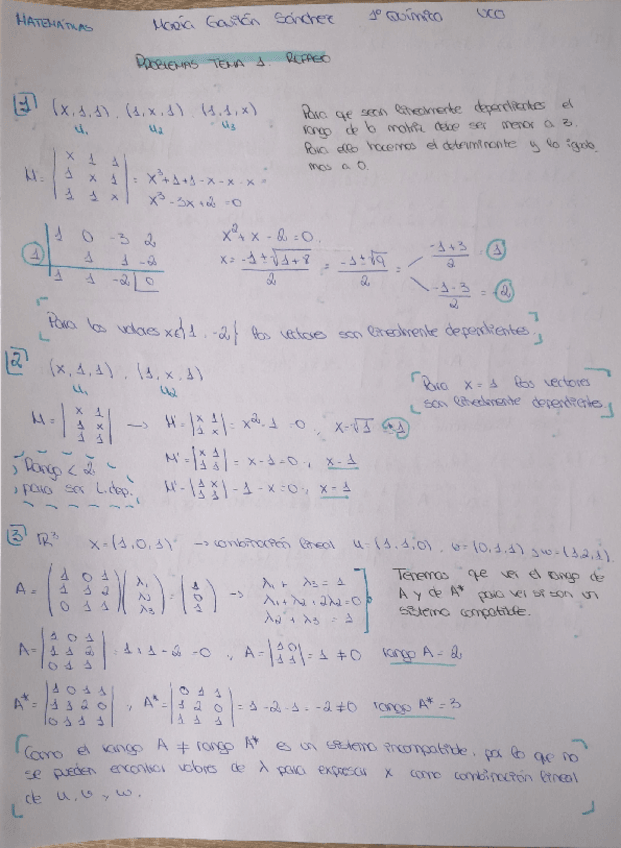 MATEMÁTICAS María Gaitán Sánchez 1º Química UCO
PROBLEMAS TEMA 1. REPASO
1 (x,1,1), (1,x,1), (1,1,x)
u₁ u₂ u₃
Para que sean linealmente dependientes el
rango de la matriz debe ser menor a 3.
Para ello hacemos el determinante y lo iguala
mos a 0.
M = |x 1 1; 1 x 1; 1 1 x| = x³+1+1-x-x-x =
x³-3x+2=0
1 0 -3 2
1 1 1 -2
1 1 -2 0
x²+x-2=0
x = (-1±√1+8)/2 = (-1±√9)/2 = (-1+3)/2 = 1
(-1-3)/2 = -2
Para los valores x∈{1,-2} los vectores son linealmente dependientes.
2 (x,1,1), (1,x,1)
u₁ u₂
Para x=1 los vectores
son linealmente dependientes
M = |x 1; 1 x; 1 1| → M' = |x 1; 1 x| = x²-1=0, x=√1 = ±1
M' = |x 1; 1 1| = x-1=0, x=1
M' = |1 x; 1 1| = 1-x=0, x=1
Rango < 2
para ser L.dep.
3 ℝ³ x=(1,0,1) → combinación lineal u=(1,1,0), v=(0,1,1) y w=(1,2,1).
A = (1 0 1; 1 1 2; 0 1 1)(λ₁; λ₂; λ₃) = (1; 0; 1) → λ₁+λ₃=1
λ₁+λ₂+2λ₂=0
λ₂+λ₃=1
Tenemos que ver el rango de
A y de A* para ver si son un
sistema compatible.
A = |1 0 1; 1 1 2; 0 1 1| = 1+1-2=0, A = |1 0; 1 1| = 1≠0 rango A=2
A* = |1 0 1 1; 1 1 2 0; 0 1 1 1|, A* = |0 1 1; 1 2 0; 1 1 1| = 1-2-1=-2≠0 rango A*=3
Como el rango A ≠ rango A* es un sistema incompatible, por lo que no
se pueden encontrar valores de λ para expresar x como combinación lineal
de u, v y w.